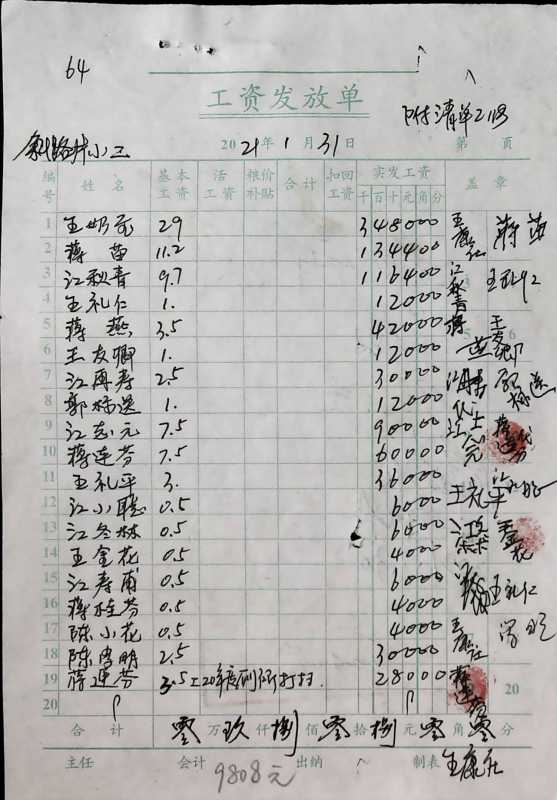 64
工资发放单
附清单21号
小三
2021年1月31日 第 页
编号 姓名 基本工资 活工资 粮价补贴 合计 扣回工资 实发工资 千百十元角分 盖章
1 王 29 348000
2 蒋苗 11.2 134400 蒋苗
3 江秋青 9.7 116400 江秋青
4 王礼仁 1. 12000 王礼仁
5 蒋燕 3.5 42000 蒋燕
6 王友卿 1. 12000 王友卿
7 江再寿 2.5 30000
8 郭标选 1. 12000 郭标选
9 江志元 7.5 90000 江志元
10 蒋连芬 7.5 60000 蒋连芬
11 王礼平 3. 36000 王礼平
12 江小聪 0.5 6000
13 江冬林 0.5 6000 江冬林
14 王金花 0.5 4000 王金花
15 江寿甫 0.5 6000
16 蒋桂芬 0.5 4000 王礼仁
17 陈小花 0.5 4000
18 陈 明 2.5 30000
19 蒋连芬 3.5 20年度厕所打扫. 28000
20 20
合计 零万玖仟捌佰零拾捌元零角零分
主任 会计 出纳 制表
9808元